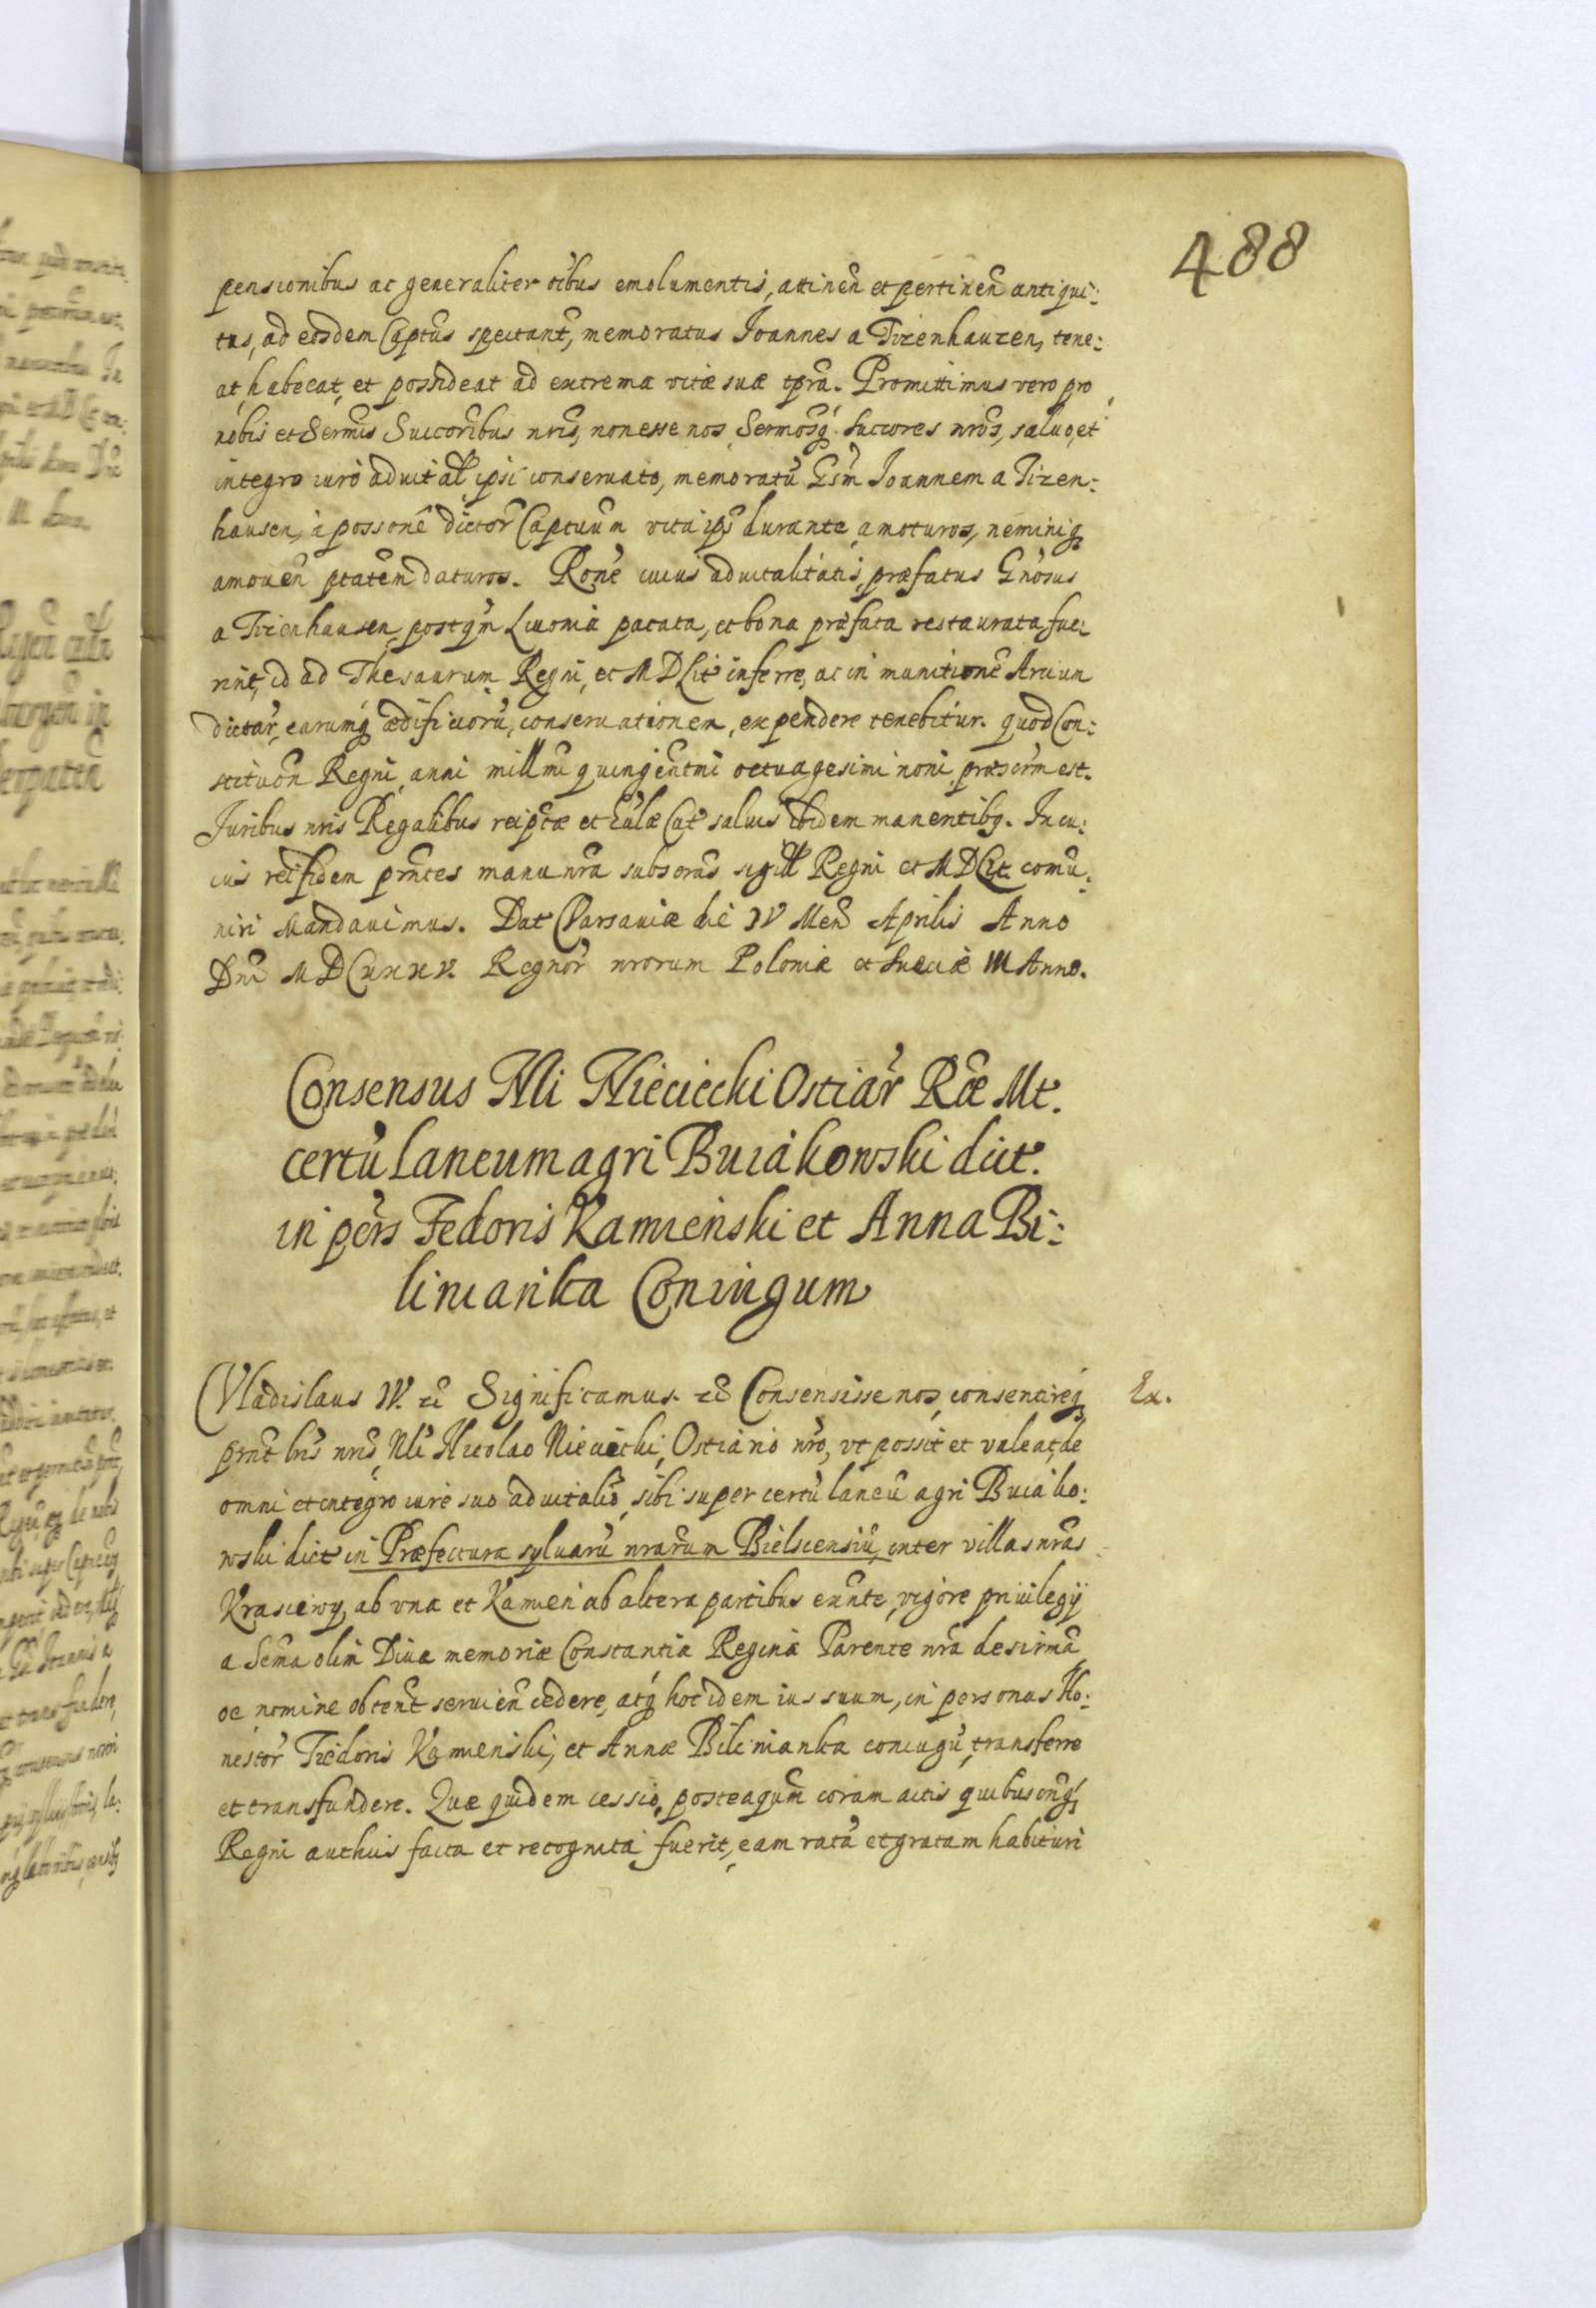 488
pensionibus ac generaliter oîbus emolumentis, attineñ et pertineñ antiqui:
tus, ad eosdem Cãptus spectant, memoratus Ioannes a Tizenhauzen, tene:
at, habeat, et possideat ad extrema vitæ suæ tpra. Promittimus vero pro
nobis et Sermis Succoribus nris, non esse nos, Sermosq́ Succores nros, saluo, et
integro iure aduitał ipsi conseruato, memoratũ Gsm̃ Ioannem a Tizen:
hausen, à possone dictor̃ Captuum vita ips̃ durante amoturos, neminiq;
amoueñ ptatem daturos. Rone cuius aduitalitatis, præfatus Gnosus
a Tizenhausen, postqm̃ Liuonia pacata, et bona præfata restaurata fue:
rint, id ad Thesaurum Regni, et M D Lit inferre, ac in munitione Arcium
dictar̃, earumq́ ædificiorũ, conseruationem, expendere tenebitur. quod Con:
stituoñ Regni, anni millmi quingentmi octuagesimi noni præscrm̃ est.
Iuribus nris Regalibus reipcæ et Ecclæ Cat saluis ibidem manentibq. In cu:
ius rei fidem prntes manu nra subscras sigill Regni et M D Lit comũ:
niri mandauimus. Dat Varsauiæ die IV Meñ Aprilis Anno
Dni M D C XXXV. Regnor̃ nrorum Poloniæ et Sueciæ III Anno.
Consensus Nli Nieciecki Ostiar̃ Ræ Mt.
certũ laneum agri Buiakowski dict.
in pers Fedoris Kamienski et Anna Bi:
linianka Coniugum
Vladislaus IV. etc̃ Significamus. etc̃ Consensisse nos, consentireq́;
prnt lris nris, Nli Nicolao Nieciecki, Ostiario nro, vt possit et valeat, de
omni et integro iure suo aduitalio, sibi super certũ laneũ agri Buiako:
wski dict in Præfectura syluarũ nrarum Bielscensiũ, inter villas nras
Krasiewy, ab vna et Kamień ab altera partibus exnte, vigore priuilegij
a Sema olim Diuæ memoriæ Constantia Regina Parente nra desirma
oe nomine obtent seruieñ cedere, atq́ hoc idem ius suum, in personas Ho:
nestor̃ Fiedoris Kamienski, et Annæ Bilinianka coniugũ, transferre
et transfundere. Quæ quidem cessio, posteaqum̃ coram actis quibuscnq́
Regni authcis facta et recognita fuerit, eam ratã et gratam habituri
Ex.